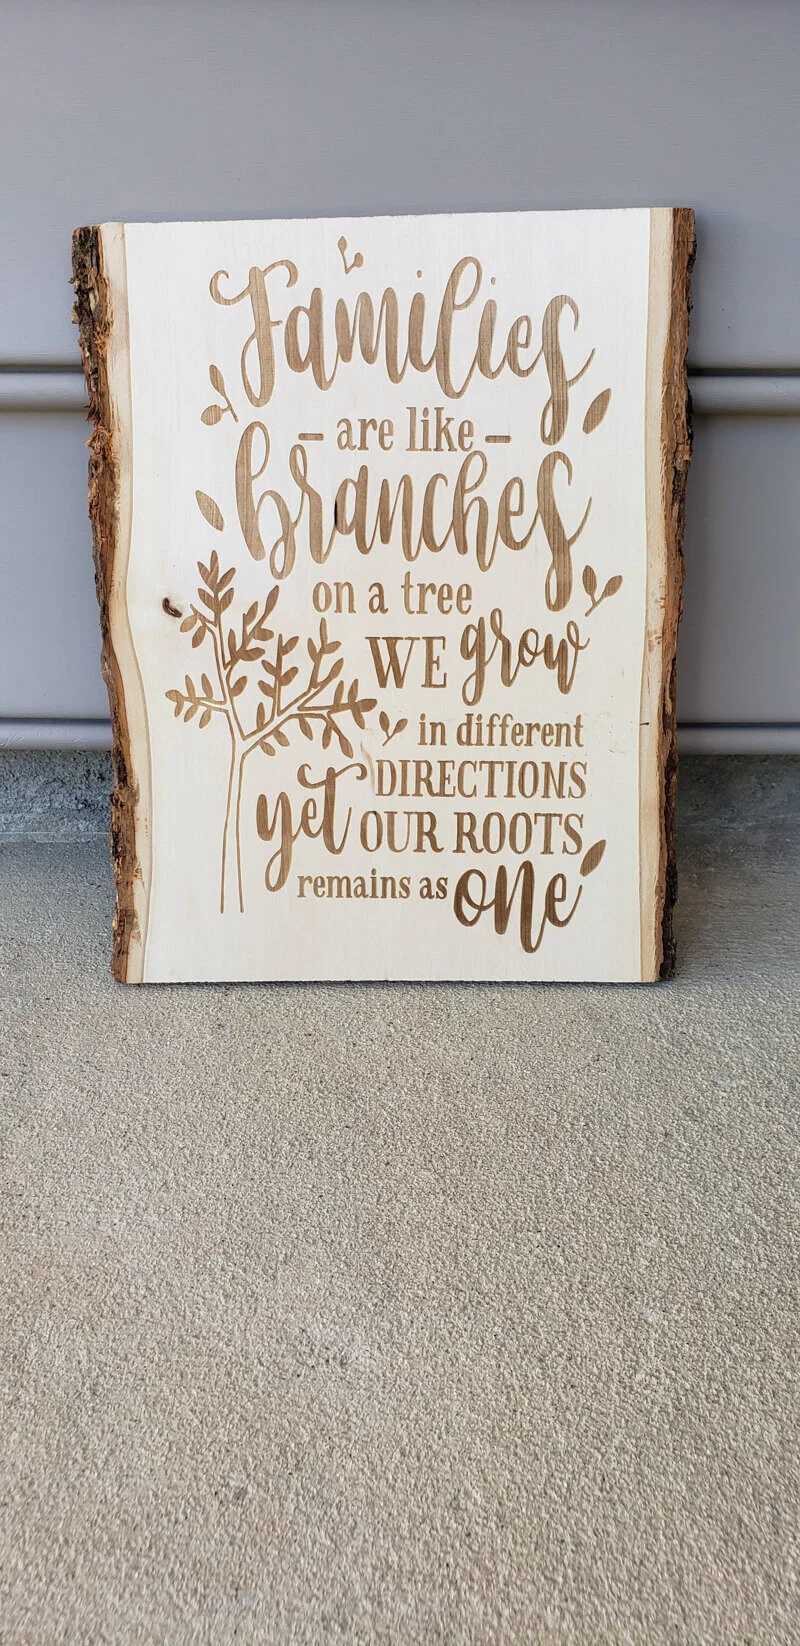 Families
- are like -
branches
on a tree
WE grow
in different
DIRECTIONS
yet OUR ROOTS
remains as one